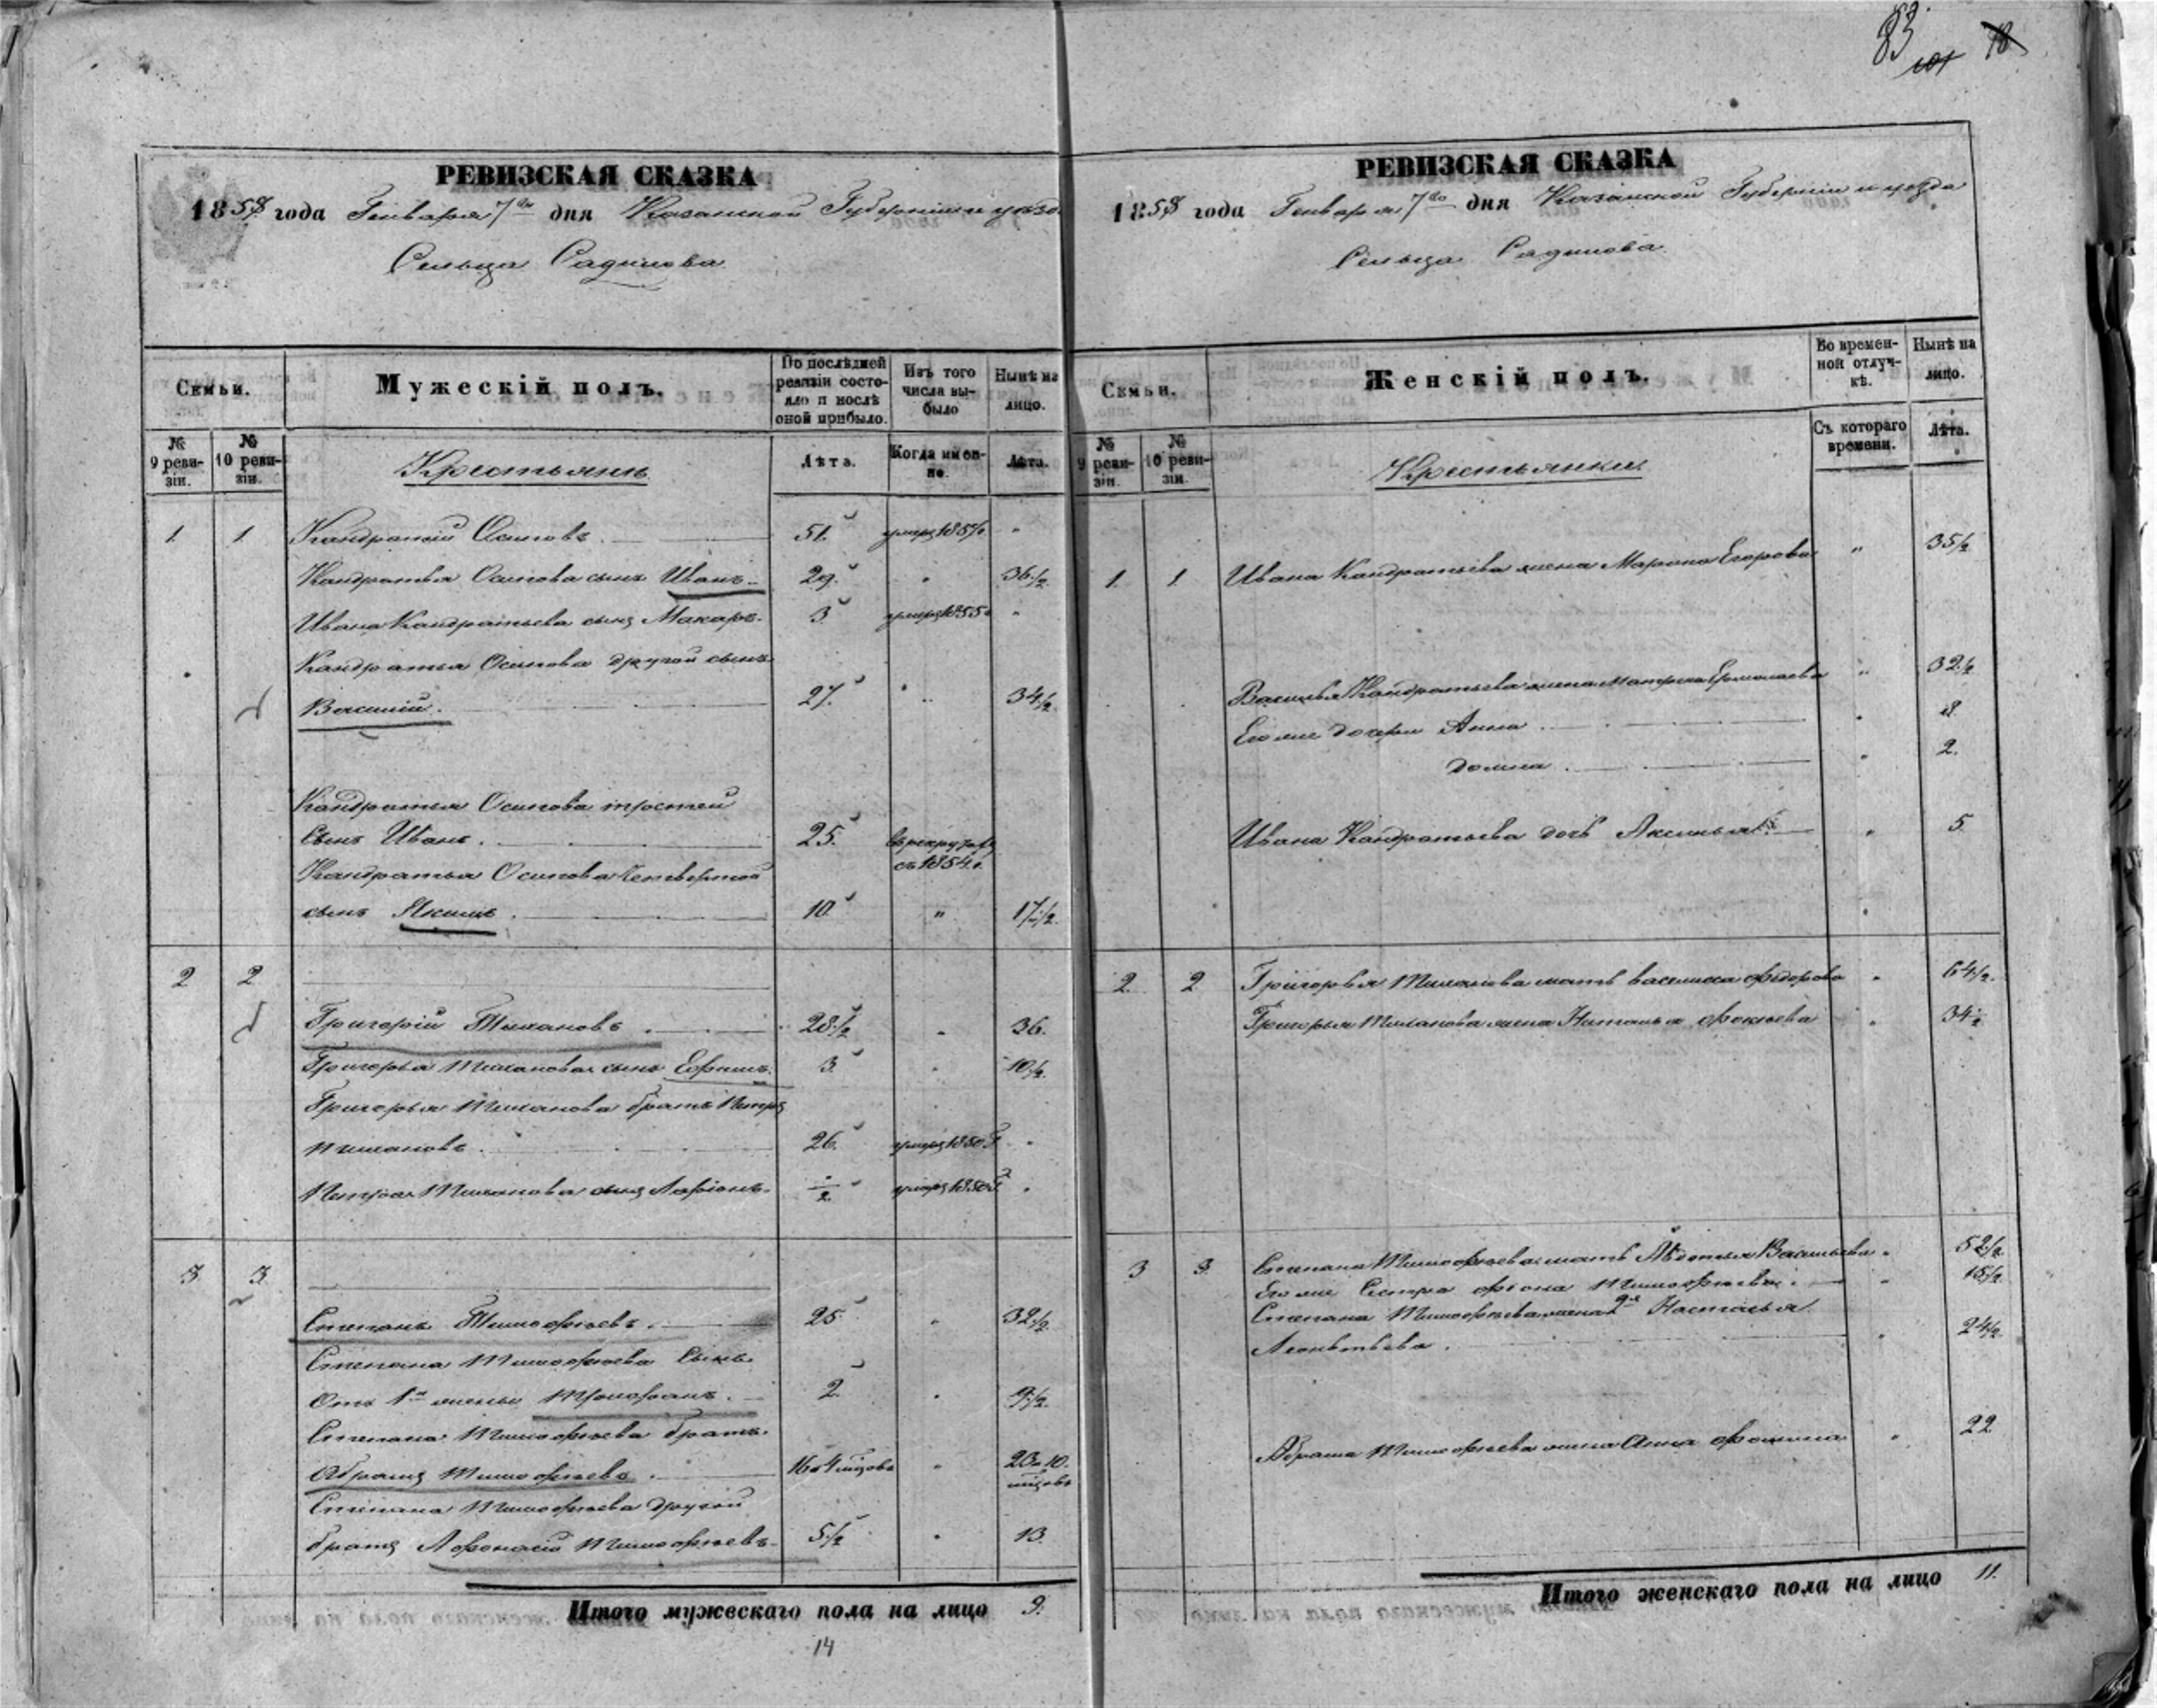 83
101
18
РЕВИЗСКАЯ СКАЗКА
1858 года Генваря 7го дня Казанской Губернии и уезда
Сельца Садилова
Семьи.
Мужескій полъ.
По послѣдней ревизіи состояло и послѣ оной прибыло.
Изъ того числа выбыло
Нынѣ на лицо.
№ 9 ревизіи.
№ 10 ревизіи.
Крестьяне
Лѣта.
Когда именно.
Лѣта.
1. 1. Кандратій Осиповъ. 51. умеръ 185 "
Кандратья Осипова сынъ Иванъ 29. " 36½
Ивана Кандратьева сынъ Макаръ 3 умеръ 1855 "
Кандратья Осипова другой сынъ
Василій. 27. " 34½
Кандратья Осипова третей
сынъ Иванъ. 25. в рекрутахъ
съ 1854 г.
Кандратья Осипова Четвертой
сынъ Якимъ. 10. " 17½
2 2
Григорій Тихановъ. 28½ " 36.
Григорья Тиханова сынъ Ефимъ. 3. " 10½
Григорья Тиханова братъ Петръ
Тихановъ. 26. умеръ 1850 Г. "
Петра Тиханова сынъ Ларіонъ ½ умеръ 1850 Г. "
3 3.
Степанъ Тимофѣевъ. 25 " 32½
Степана Тимофѣева сынъ
Отъ 1й жены Трофимъ. 2. " 9½
Степана Тимофѣева братъ
Абрамъ Тимофѣевъ. 16 и 4 мѣсцовъ " 23 и 10.
мѣсцовъ
Степана Тимофѣева другой
братъ Афонасій Тимофѣевъ 5½ " 13.
Итого мужескаго пола на лицо 9.
14
РЕВИЗСКАЯ СКАЗКА
1858 года Генваря 7го дня Казанской Губерніи и уезда
Сельца Садилова
Семьи.
Женскій полъ.
Во временной отлучкѣ.
Нынѣ на лицо.
№ 9 ревизіи.
№ 10 ревизіи.
Крестьянки
Съ котораго времени.
Лѣта.
1. 1 Ивана Кандратьева жена Марина Егорова " 35½
Василья Кандратьева жена Матрена Ермолаева " 32½
Его же дочери Анна. " 8
Домна. " 2.
Ивана Кандратьева дочь Аксинья " 5.
2. 2 Григорья Тиханова мать Василиса Федорова " 64½
Григорья Тиханова жена Наталья Фокиева " 34½
3 3. Степана Тимофѣева мать Авдотья Васильева " 52½
Его же Сестра Тимофѣева. " 15½
Степана Тимофѣева жена 2я Настасья
Леонтьева. " 24½
Абрама Тимофѣева жена Анна Фомина " 22
Итого женскаго пола на лицо 11.